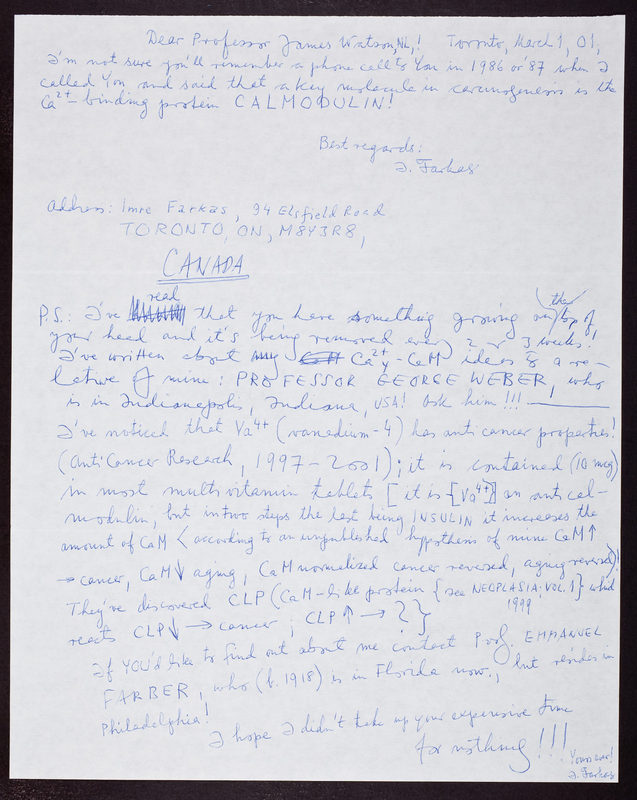 Dear Professor James Watson, NL,! Toronto, March 1, 01,
I'm not sure you'll remember a phone call to You in 1986 or '87 when I
called You and said that a key molecule in carcinogenesis is the
Ca2+-binding protein CALMODULIN!
Best regards:
I. Farkas
Address: Imre Farkas, 94 Elsfield Road
TORONTO, ON, M8Y3R8,
CANADA
P.S.: I've read that you have something growing on the top of,
your head and it's being removed every 2 or 3 weeks.
I've written about my Ca2+-CaM ideas to a re-
lative of mine: PROFESSOR GEORGE WEBER, who
is in Indianapolis, Indiana, USA! Ask him!!!
I've noticed that Va4+ (vanadium-4) has anticancer properties!
(AntiCancer Research, 1997-2001); it is contained (10 mcg)
in most multivitamin tablets [it is [Va4+] an antical-
modulin, but in two steps the last being INSULIN it increases the
amount of CaM < according to an unpublished hypothesis of mine CaM↑
→ cancer, CaM↓ aging, CaM normalized cancer reversed, aging reversed)!
They've discovered CLP (CaM-like protein {see NEOPLASIA; VOL. 1} which
1999,
reacts CLP↓ → cancer; CLP↑ → ?}
If YOU'd like to find out about me contact Prof. EMMANUEL
FARBER, who (b. 1918) is in Florida now., but resides in
Philadelphia!
I hope I didn't take up your expensive time
for nothing!!!
Yours ever!
I. Farkas